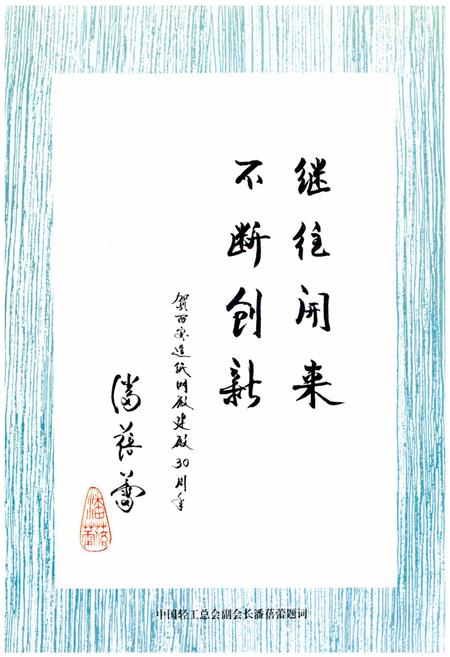 继往开来
不断创新
贺西安造纸网厂建厂30周年
潘蓓蕾
潘蓓蕾
中国轻工总会副会长潘蓓蕾题词